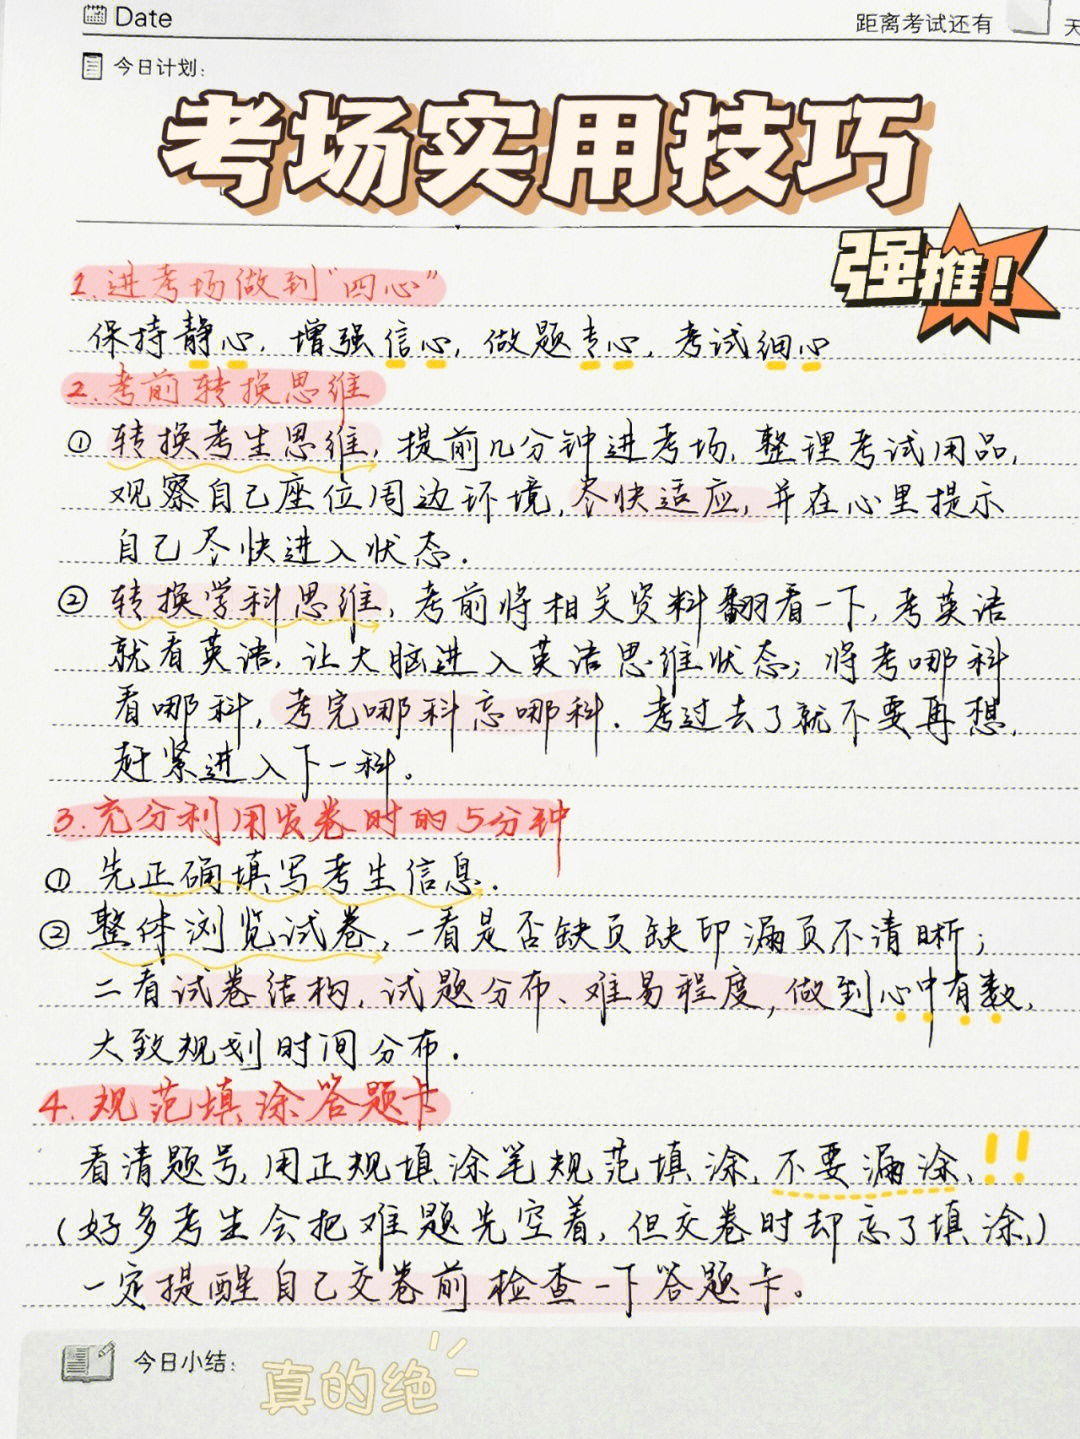 Date
距离考试还有
天
今日计划:
考场实用技巧
强推!
1.进考场做到"四心"
保持静心,增强信心,做题专心,考试细心
2.考前转换思维
① 转换考生思维,提前几分钟进考场,整理考试用品,
观察自己座位周边环境,尽快适应,并在心里提示
自己尽快进入状态.
② 转换学科思维,考前将相关资料翻看一下,考英语
就看英语,让大脑进入英语思维状态;将考哪科
看哪科,考完哪科忘哪科.考过去了就不要再想,
赶紧进入下一科。
3.充分利用发卷时的5分钟
① 先正确填写考生信息.
② 整体浏览试卷,一看是否缺页缺印漏页不清晰;
二看试卷结构,试题分布、难易程度,做到心中有数,
大致规划时间分布.
4.规范填涂答题卡
看清题号,用正规填涂笔规范填涂,不要漏涂,!!
(好多考生会把难题先空着,但交卷时却忘了填涂,)
一定提醒自己交卷前检查一下答题卡。
今日小结:
真的绝